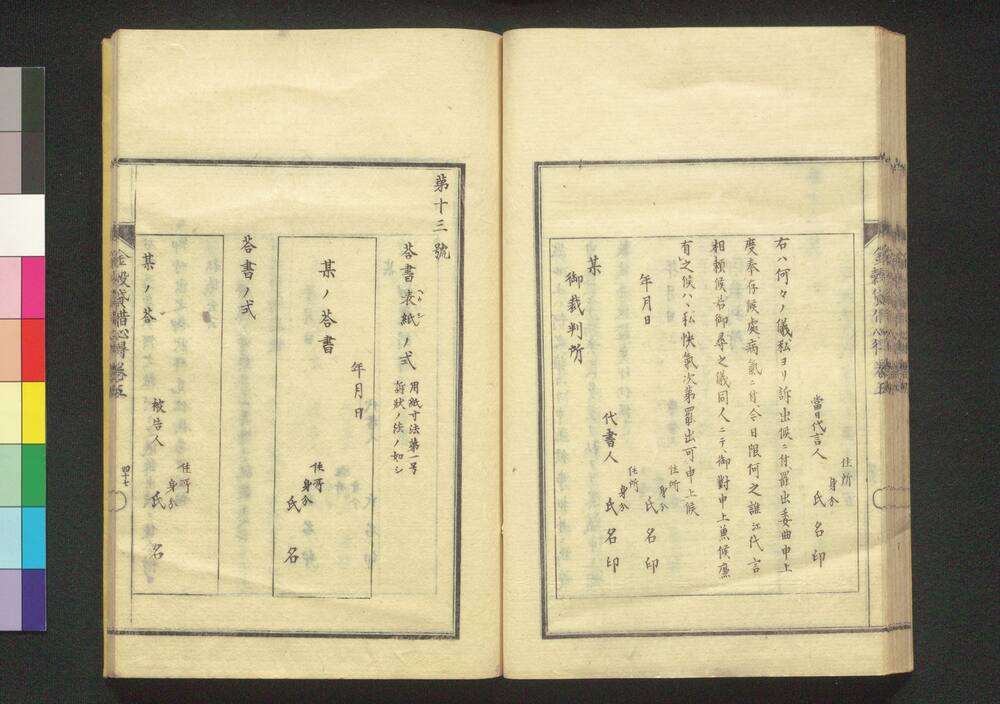 當日代言人
住所
身分
氏名印
右ハ何々ノ儀私ヨリ訴出候ニ付罷出委曲申上
度奉存候處病氣ニ付今日限何之誰江代言
相頼候若御尋之儀同人ニテ御對申上兼候廉
有之候ハヽ私快氣次第罷出可申上候
住所
身分
氏名印
年月日
代書人
住所
身分
氏名印
某
御裁判所
第十三號
荅書表紙ノ式
用紙寸法第一号
訴狀ノ法ノ如シ
年月日
某ノ荅書
住所
身分
氏名
荅書ノ式
某ノ荅
被告人
住所
身分
氏名
金穀貸借心得 卷五
四十七